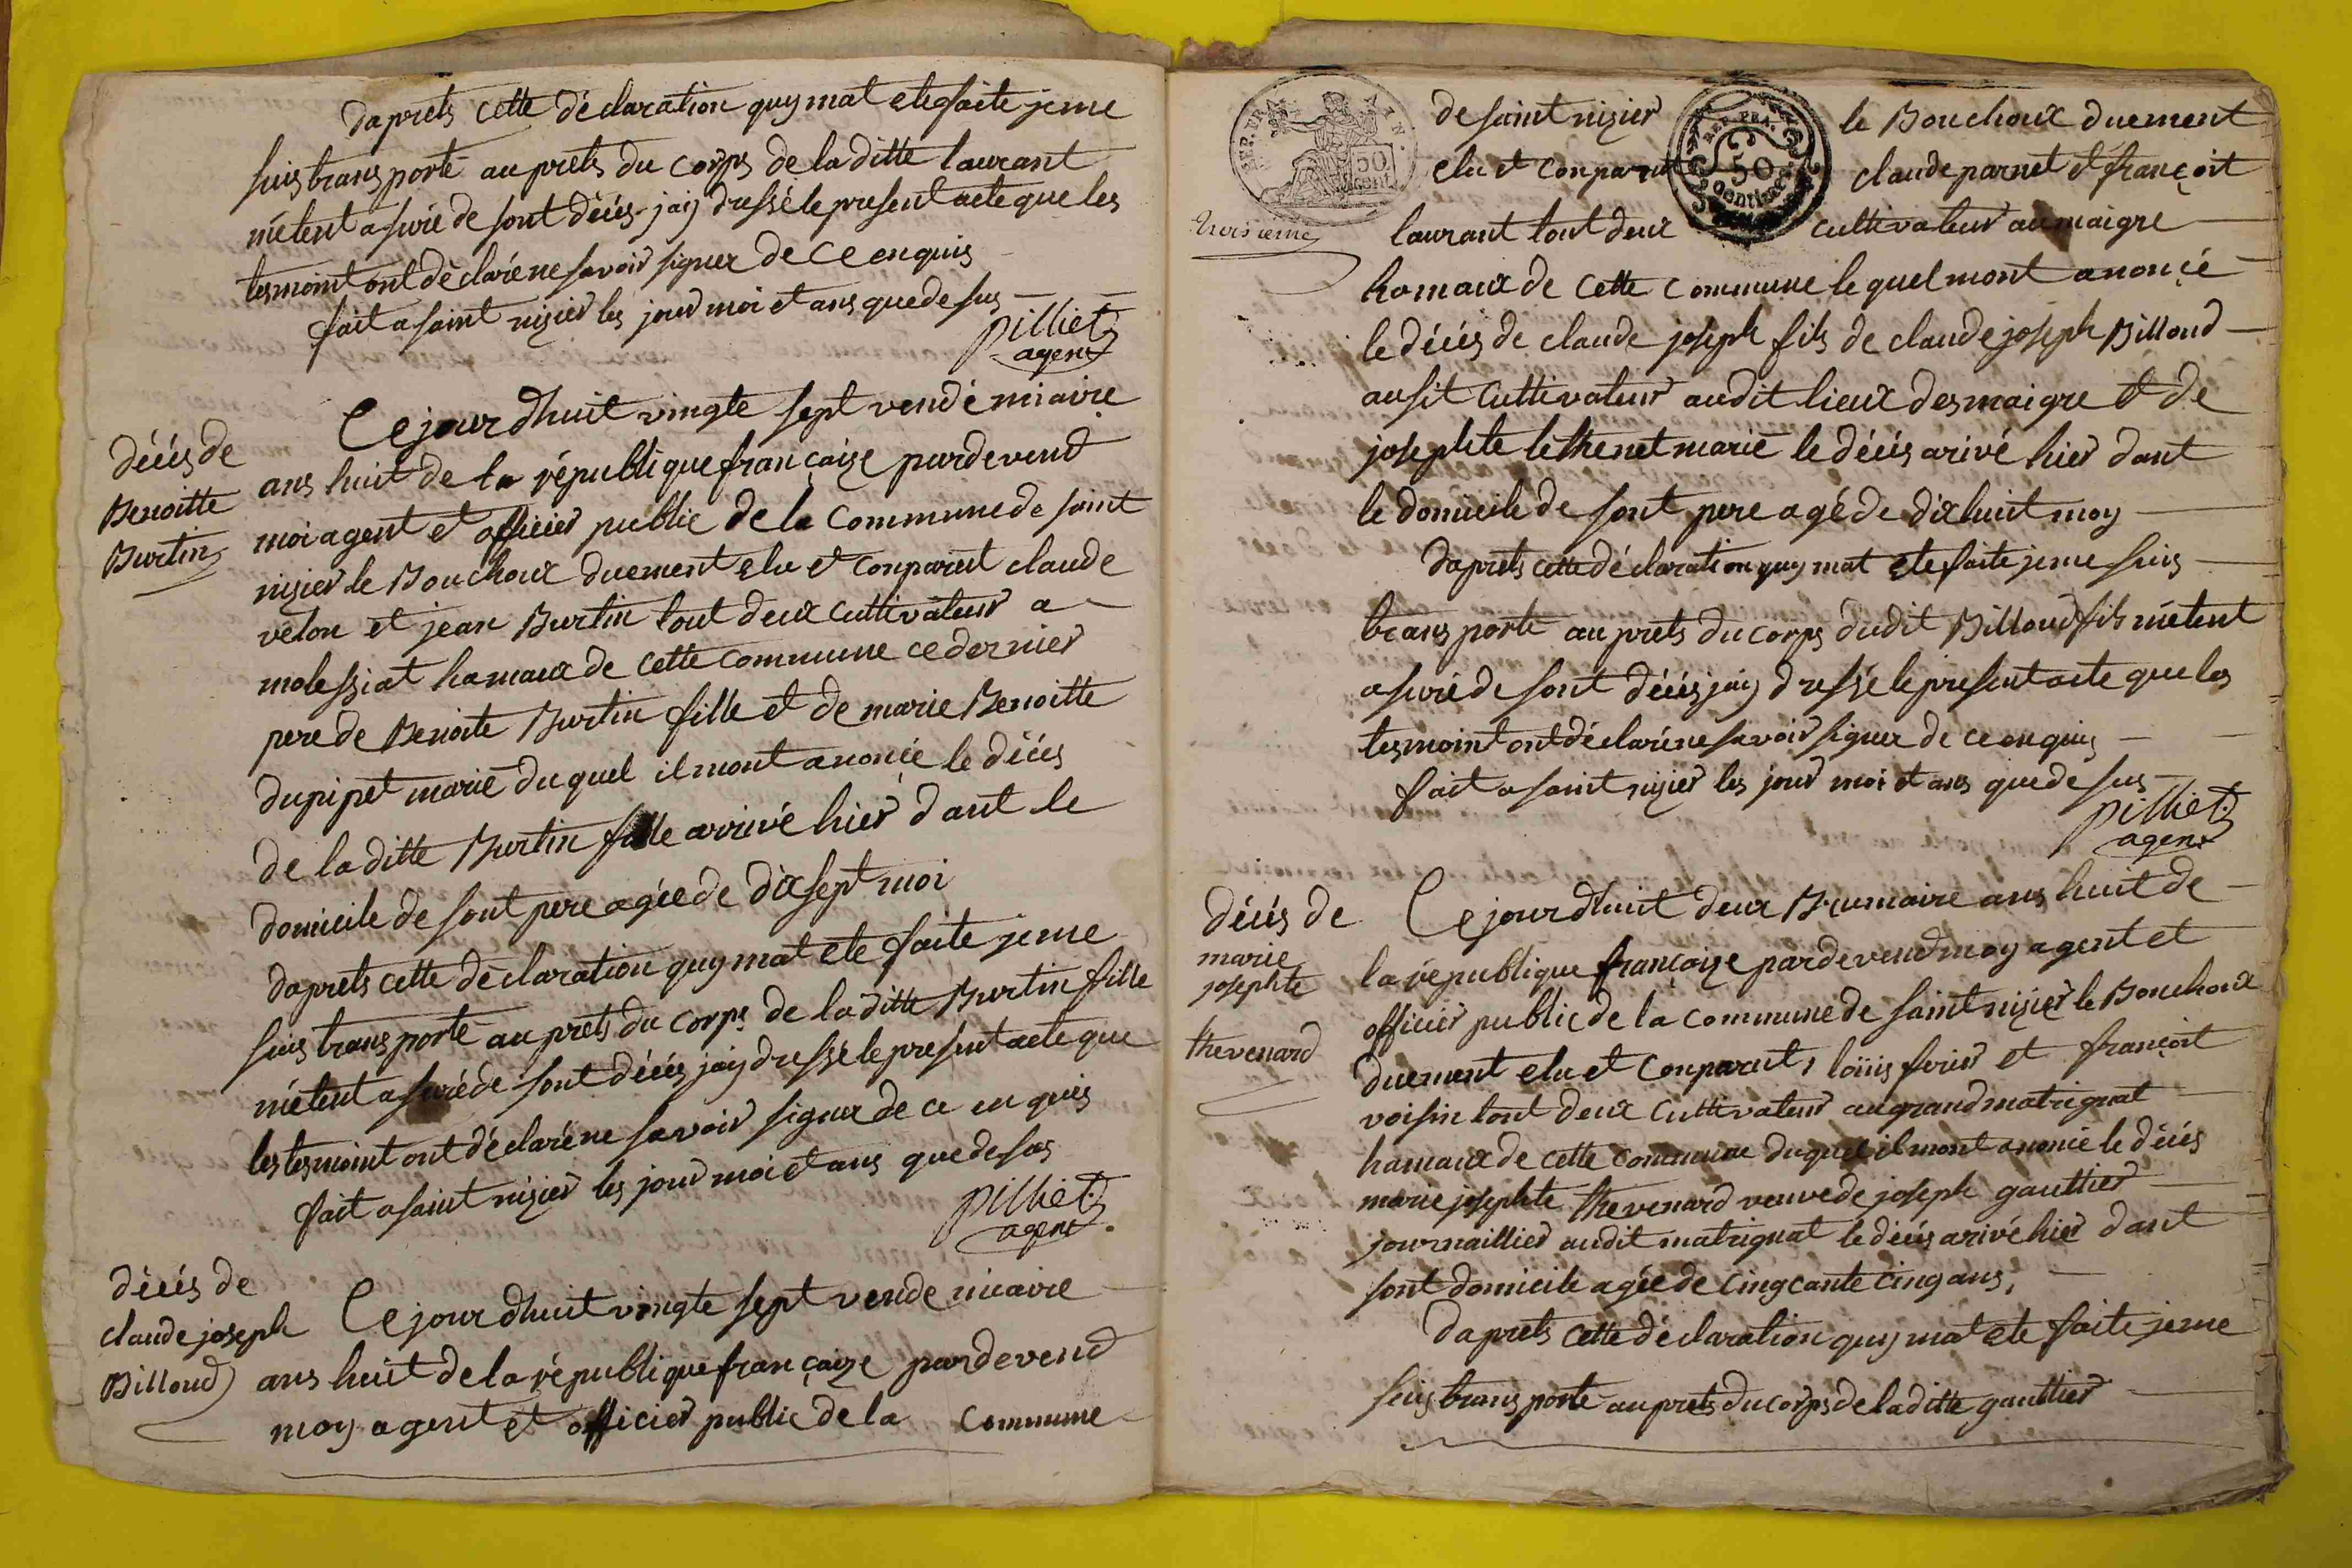 daprets cette déclaration quy mat ete faite jeme
suis transporté au prets du corps de la ditte laurant
mètent asuré de sont décés jaij dressé le present acte que les
tesmoint ont déclaré ne savoir signer de ce enquis
fait a saint nizier les jour moi et ans que de sus
pilliet
agent
décés de
Benoitte
Burtin
Ce jour dhuit vingte sept vendémiaire
ans huit de la république françaize pardevend
moi agent et officier public de la Commune de saint
nizier le Bouchoux duement elu et Conparut claude
velon et jean Burtin tout deux cultivateur a
molessiat hamaux de cette commune ce dernier
pere de Benoite Burtin fille et de marie Benoitte
dupipet marié duquel il mont anoncé le décés
de la ditte Burtin fille arrivé hier dant le
domicile de sont pere agée de dix sept moi
daprets cette déclaration quy mat ete faite jeme
suis transporté au prets du corps de la ditte Burtin fille
mètent asuré de sont décés jaij dressé le present acte que
les tesmoint ont déclaré ne savoir signer de ce enquis
fait a saint nizier les jour moi et ans que de sus
pilliet
agent
décés de
claude joseph
Billoud
Ce jour dhuit vingte sept vendemiaire
ans huit de la république françaize pardevend
moy agent et officier public de la commune
REP. FRA.
50 cent
REP. FRA.
50
centimes
troisieme
de saint nizier le Bouchoux duement
elu et Conparut claude parnet et françoit
laurant tout deux cultivateur au maigre
hamaux de cette commune lequel mont anoncé
le décés de claude joseph fils de claude joseph Billoud
ausit cultivateur audit lieux des maigre et de
josephte lethenet marié le décés arivé hier dant
le domicile de sont pere agé de dix huit moy
daprets cette déclaration quy mat ete faite jeme suis
transporté au prets du corps dudit Billoud fils mètent
asuré de sont décés jaij dressé le present acte que les
tesmoint ont déclaré ne savoir signer de ce enquis
fait a saint nizier les jour moi et ans que de sus
pilliet
agent
décés de
marie
josephte
thevenard
Ce jour dhuit deux Brumaire ans huit de
la république françaize pardevend moy agent et
officier public de la commune de saint nizier le Bouchoux
duement elu et Conparut, loüis ferier et françoit
voisin tout deux cultivateur au grand matrignat
hamaux de cette commune duquel il mont anoncé le décés
marie josephte thevenard veuve de joseph gauttier
journaillier audit matrignat le décés arivé hier dant
sont domicile agée de cinqcante cinq ans,
daprets cette déclaration quy mat ete faite jeme
suis transporté au prets du corps de la ditte gauttier